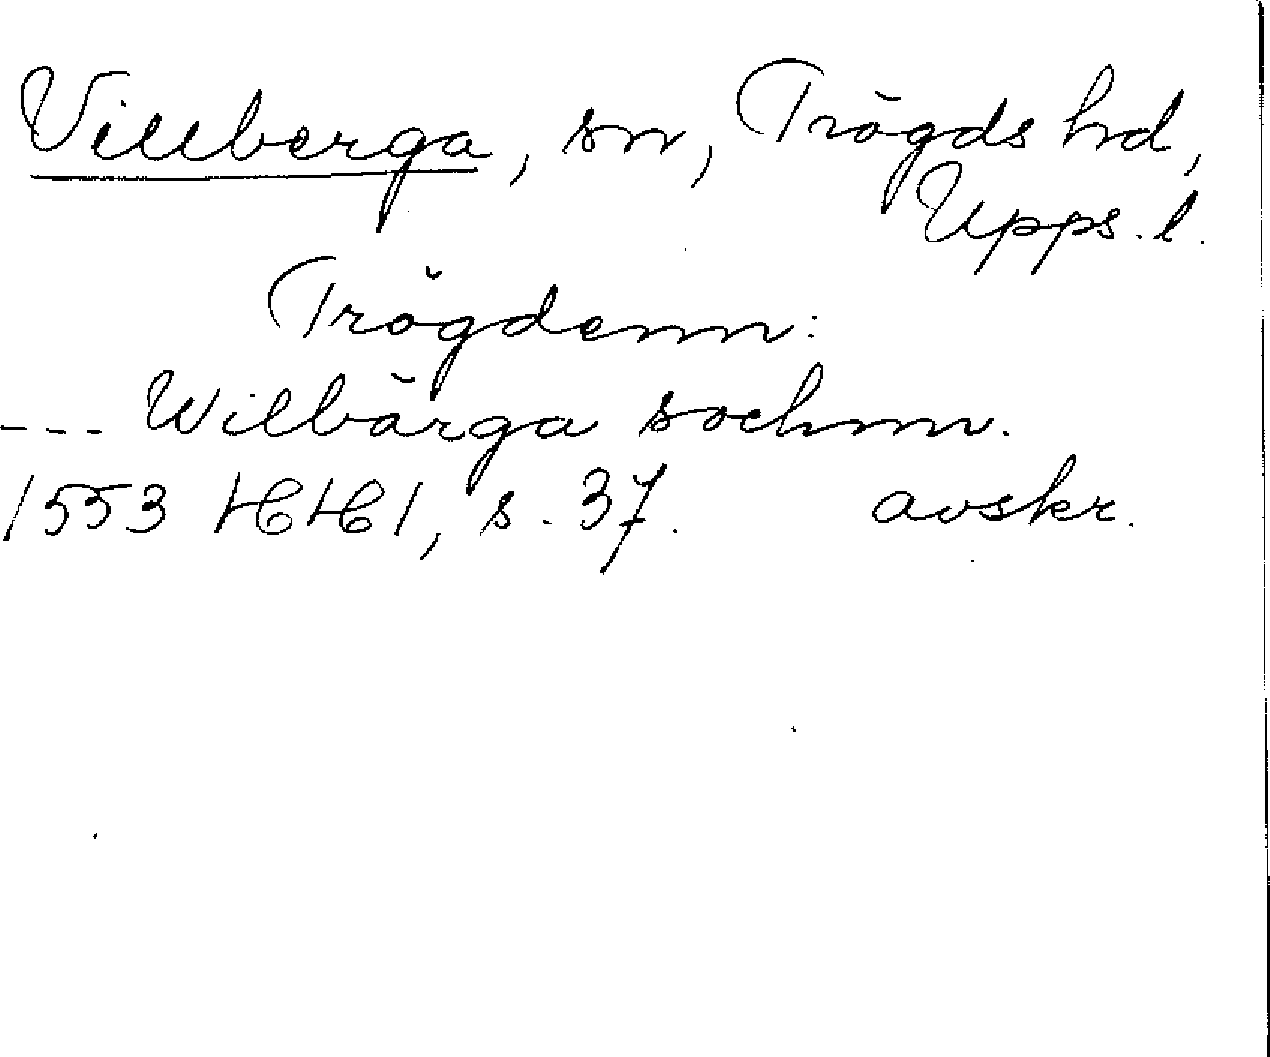 Villberga, sn, Trögds hd,
Upps. l.
Trögdenn:
--- Wilbärga sochnn.
1553 HH1, s. 37. avskr.